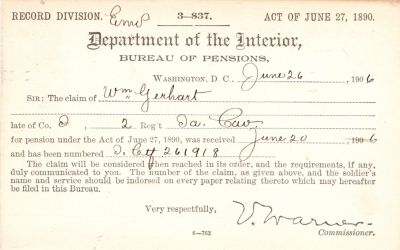 RECORD DIVISION. 3—837. ACT OF JUNE 27, 1890.
Department of the Interior,
BUREAU OF PENSIONS,
WASHINGTON, D. C., June 26, 1906
SIR: The claim of Wm Gerhart
late of Co. D, 2 Reg't Ia. Cav.
for pension under the Act of June 27, 1890, was received June 20 1906
and has been numbered 261918
The claim will be considered when reached in its order, and the requirements, if any,
duly communicated to you. The number of the claim, as given above, and the soldier's
name and service should be indorsed on every paper relating thereto which may hereafter
be filed in this Bureau.
Very respectfully, V. Warner
Commissioner.
6—763